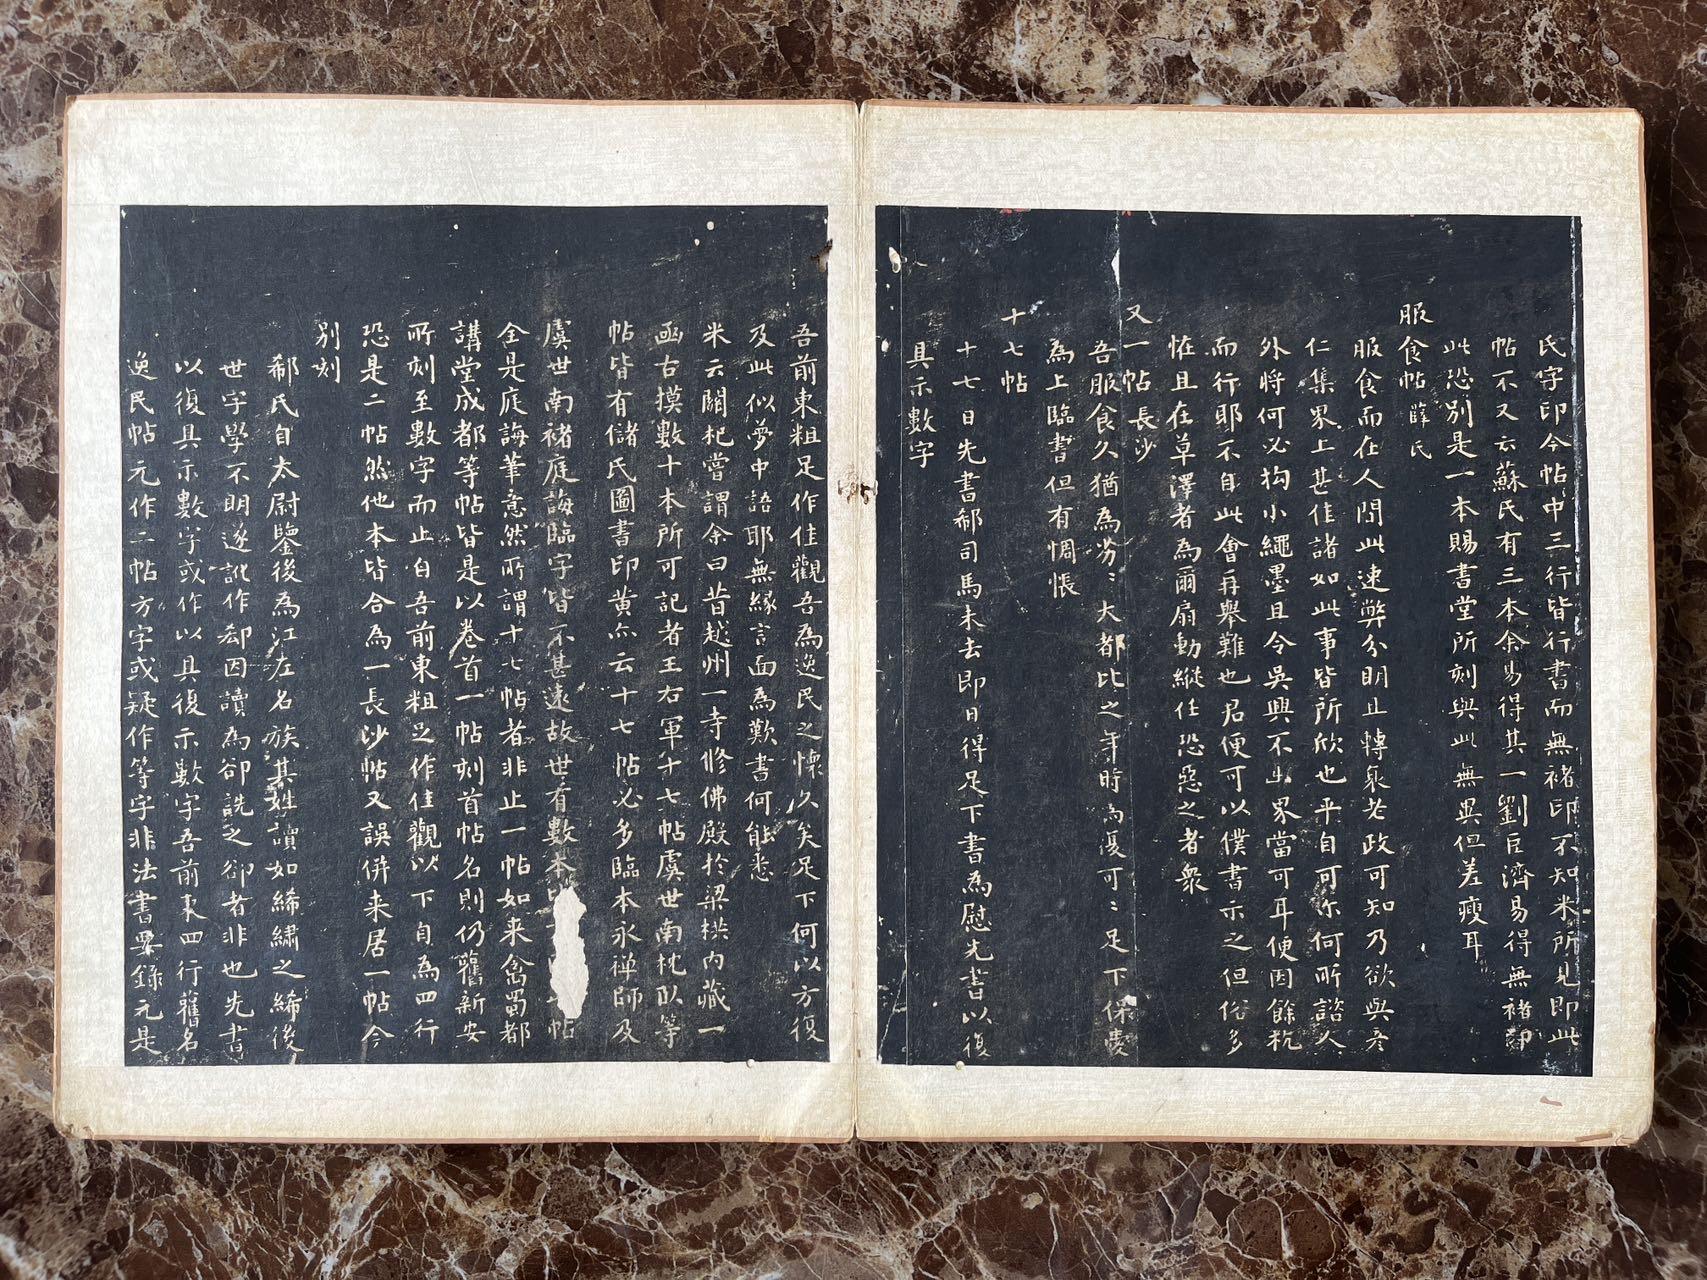 氏字印今帖中三行皆行書而無褚印不知米所見即此
帖不又云蘇氏有三本余易得其一劉巨濟易得無褚印
此恐別是一本賜書堂所刻與此無異但差瘦耳
服食帖 薛氏
服食而在人間此速弊分明且轉衰老政可知乃欲與彥
仁集界上甚佳諸如此事皆所欣也平自可尓何所諮人
外將何必构小繩墨且今吳興不出界當可耳便因餘杭
而行耶不自此會再舉難也君便可以僕書示之但俗多
恠且在草澤者為爾扇動縱任恐惡之者衆
又一帖 長沙
吾服食久猶為劣〻大都比之年時為復可〻足下保愛
為上臨書但有惆悵
十七帖
十七日先書郗司馬未去即日得足下書為慰先書以復
具示數字
吾前東粗足作佳觀吾為逸民之懷久矣足下何以方復
及此似夢中語耶無緣言面為歎書何能悉
米云關杞嘗謂余曰昔越州一寺修佛殿於梁栱内藏一
函古摸數十本所可記者王右軍十七帖虞世南枕臥等
帖皆有儲氏圖書印黄亦云十七帖必多臨本永禅師及
虞世南褚庭誨臨字皆不甚遠故世有數本 帖
全是庭誨筆意然所謂十七帖者非止一帖如来禽蜀都
講堂成都等帖皆是以卷首一帖刻首帖名則仍舊新安
所刻至數字而止自吾前東粗足作佳觀以下自為四行
恐是二帖然他本皆合為一長沙帖又誤併来居一帖今
別刻
郗氏自太尉鑒後為江左名族其姓讀如絺繡之絺後
世字學不明遂訛作郄因讀為卻詵之卻者非也先書
以復具示數字或作以具復示數字吾前東四行舊名
逸民帖元作二帖方字或疑作等字非法書要錄元是